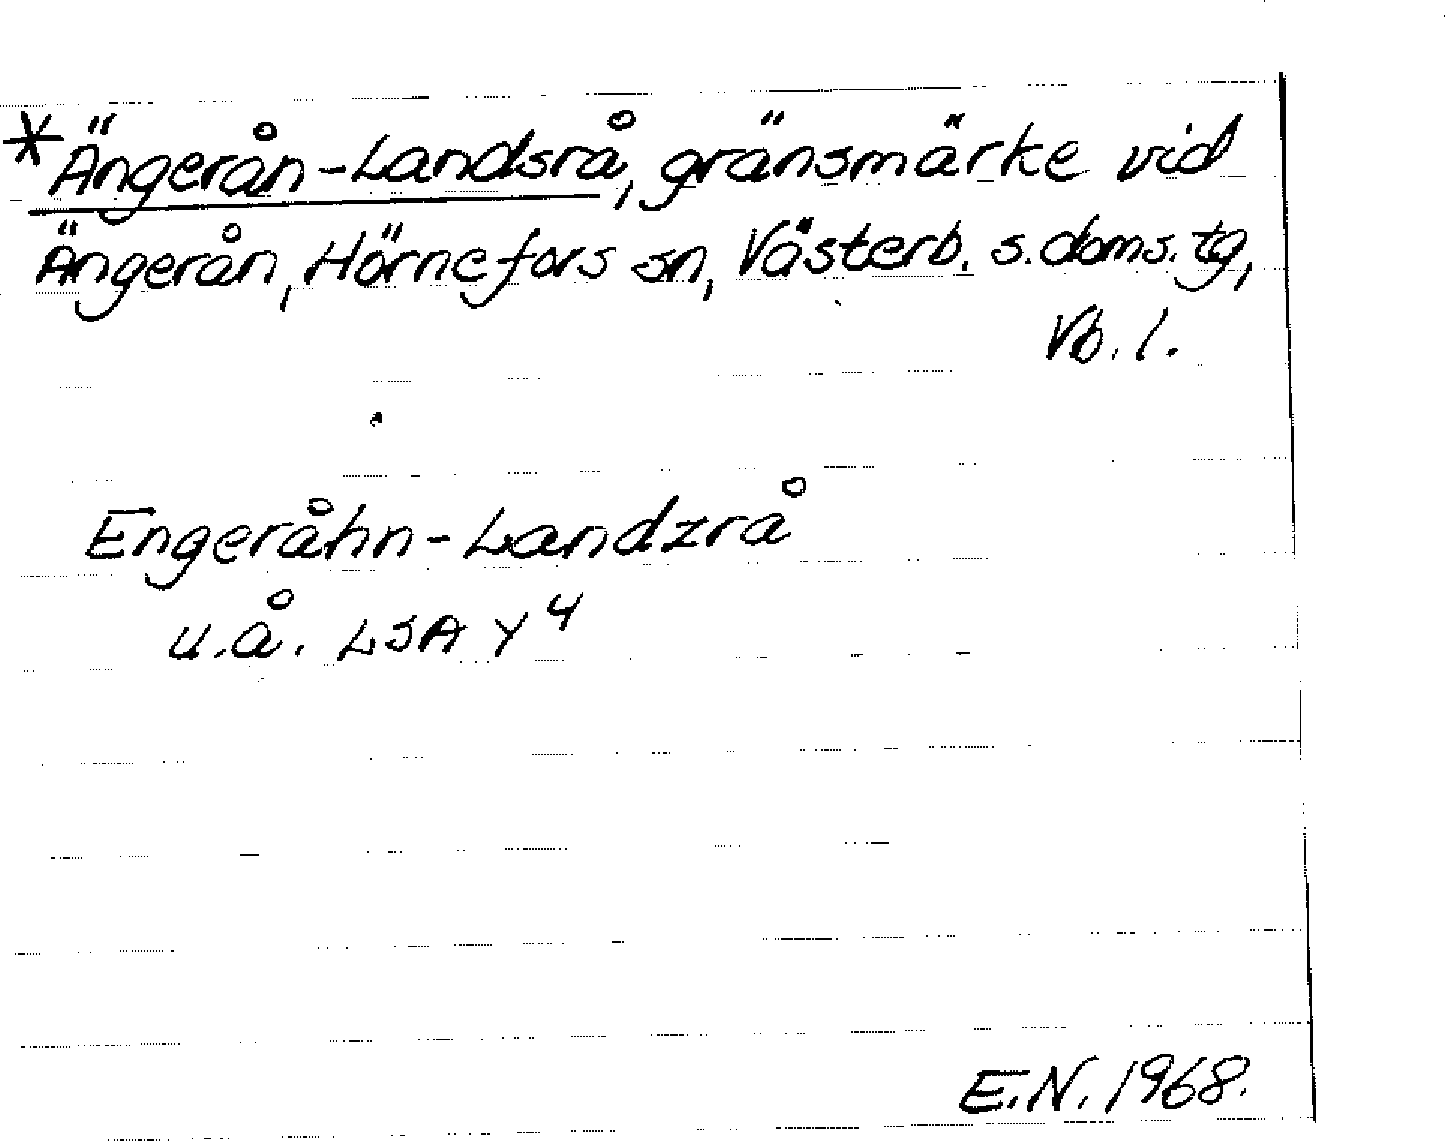 *Ängerån-Landsrå, gränsmärke vid
Ängerån, Hörnefors sn, Västerb. s. doms. tg,
Vb. l.
Engeråhn-Landzrå
u.å. LSA Y⁴
E.N. 1968.